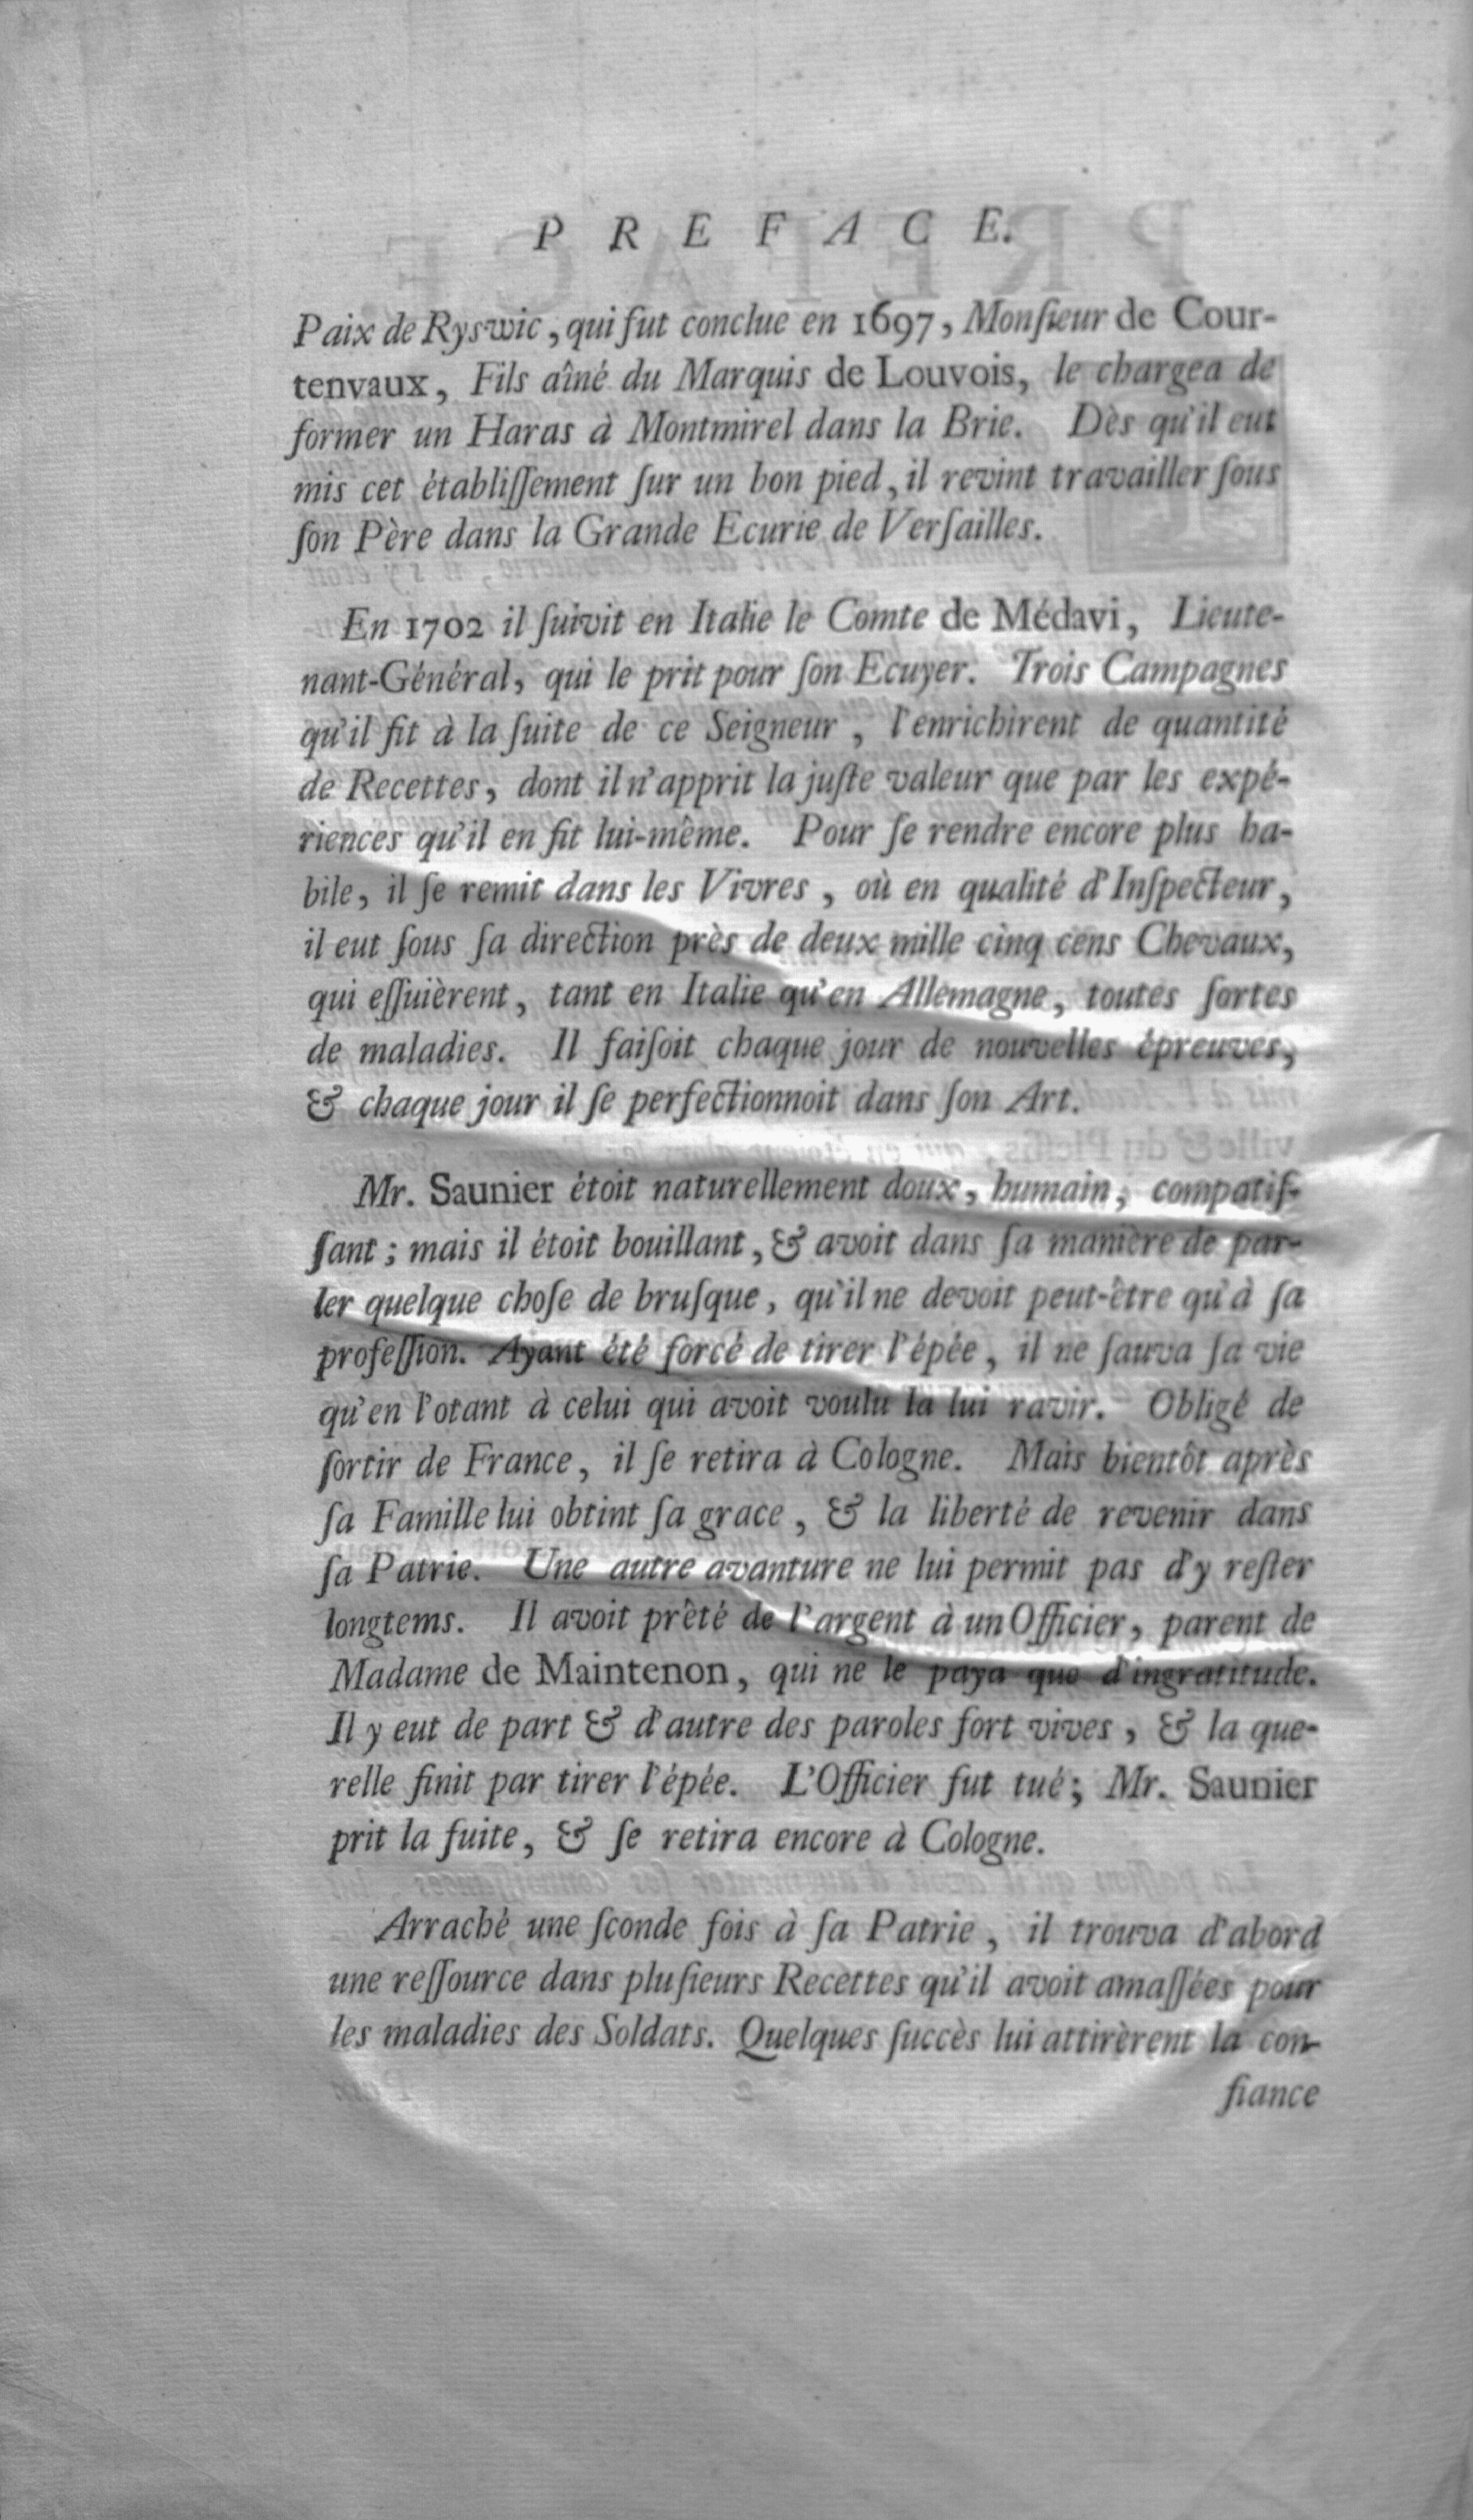 PREFACE.
Paix de Ryswic, qui fut conclue en 1697, Monſieur de Cour-
tenvaux, Fils aîné du Marquis de Louvois, le chargea de
former un Haras à Montmirel dans la Brie. Dès qu'il eut
mis cet établiſſement ſur un bon pied, il revint travailler ſous
ſon Père dans la Grande Ecurie de Verſailles.
En 1702 il ſuivit en Italie le Comte de Médavi, Lieute-
nant-Général, qui le prit pour ſon Ecuyer. Trois Campagnes
qu'il fit à la ſuite de ce Seigneur, l'enrichirent de quantité
de Recettes, dont il n'apprit la juſte valeur que par les expé-
riences qu'il en fit lui-même. Pour ſe rendre encore plus ha-
bile, il ſe remit dans les Vivres, où en qualité d'Inſpecteur,
il eut ſous ſa direction près de deux mille cinq cens Chevaux,
qui eſſuièrent, tant en Italie qu'en Allemagne, toutes ſortes
de maladies. Il faiſoit chaque jour de nouvelles épreuves,
& chaque jour il ſe perfectionnoit dans ſon Art.
Mr. Saunier étoit naturellement doux, humain, compatiſ-
ſant; mais il étoit bouillant, & avoit dans ſa manière de par-
ler quelque choſe de bruſque, qu'il ne devoit peut-être qu'à ſa
profeſſion. Ayant été forcé de tirer l'épée, il ne ſauva ſa vie
qu'en l'otant à celui qui avoit voulu la lui ravir. Obligé de
ſortir de France, il ſe retira à Cologne. Mais bientôt après
ſa Famille lui obtint ſa grace, & la liberté de revenir dans
ſa Patrie. Une autre avanture ne lui permit pas d'y reſter
longtems. Il avoit prêté de l'argent à un Officier, parent de
Madame de Maintenon, qui ne le paya que d'ingratitude.
Il y eut de part & d'autre des paroles fort vives, & la que-
relle finit par tirer l'épée. L'Officier fut tué; Mr. Saunier
prit la fuite, & ſe retira encore à Cologne.
Arraché une ſconde fois à ſa Patrie, il trouva d'abord
une reſſource dans pluſieurs Recettes qu'il avoit amaſſées pour
les maladies des Soldats. Quelques ſuccès lui attirèrent la con-
fiance